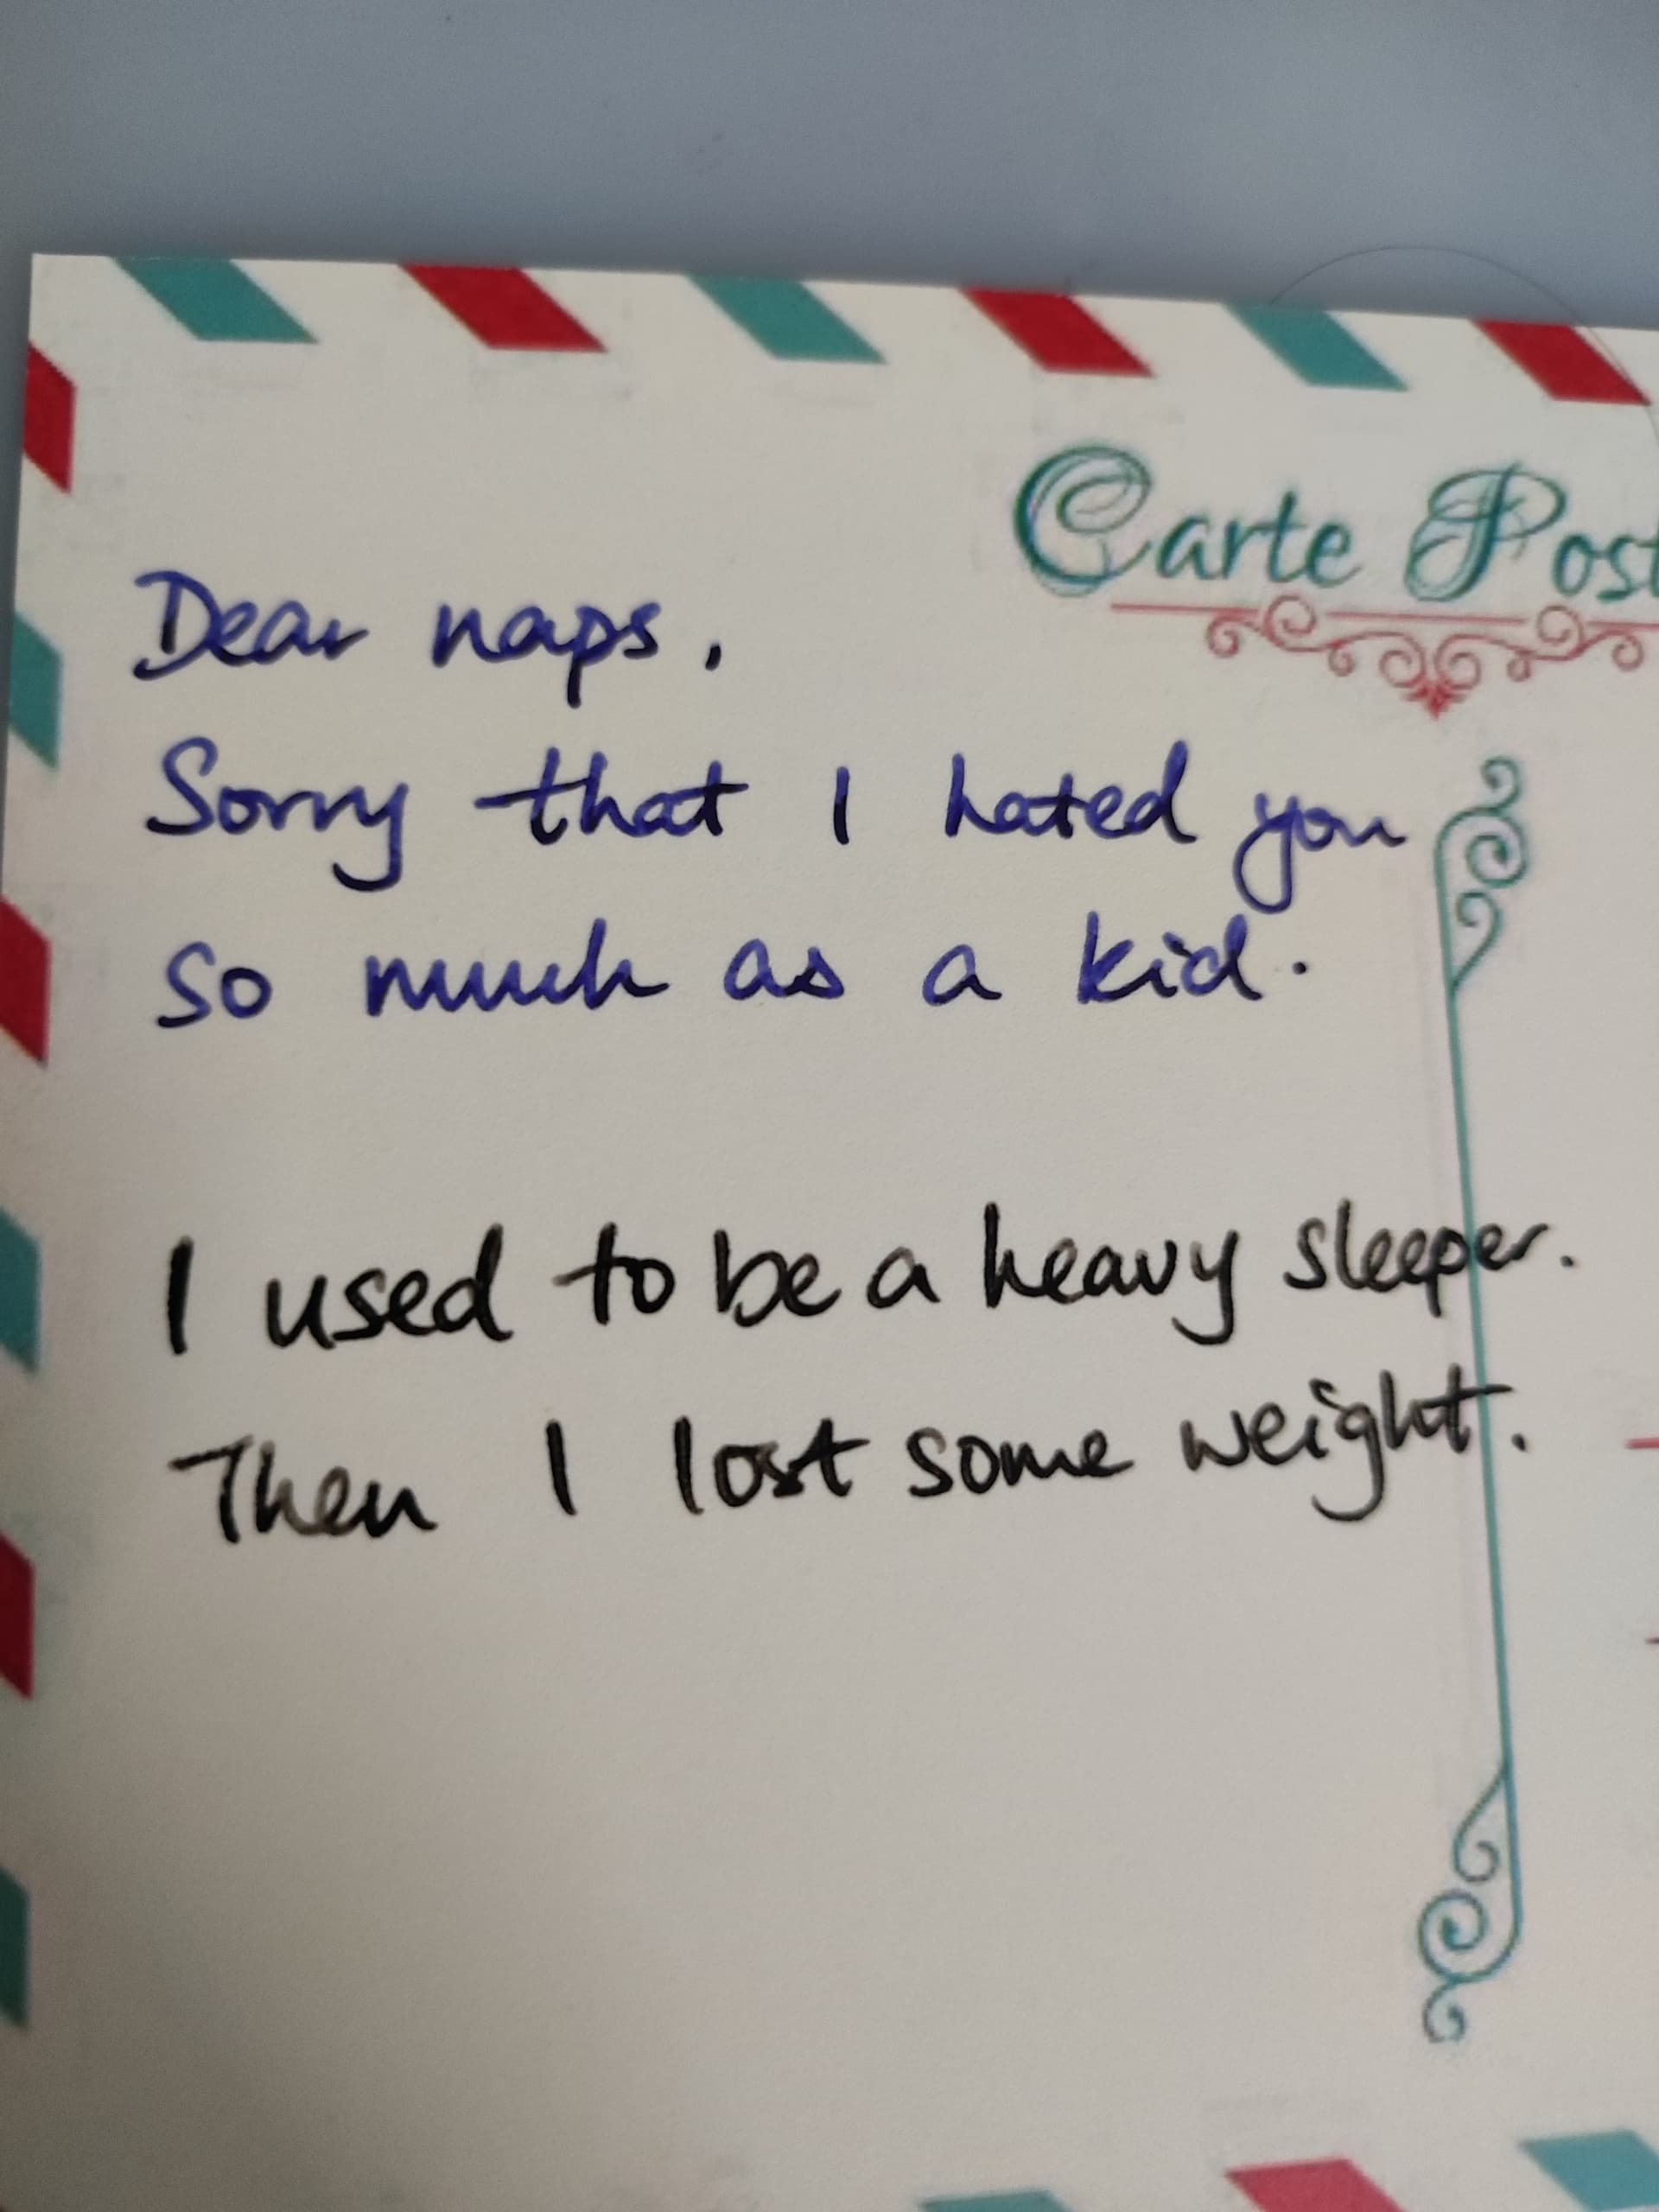 Carte Post
Dear naps,
Sorry that I hated you
so much as a kid.
I used to be a heavy sleeper.
Then I lost some weight.